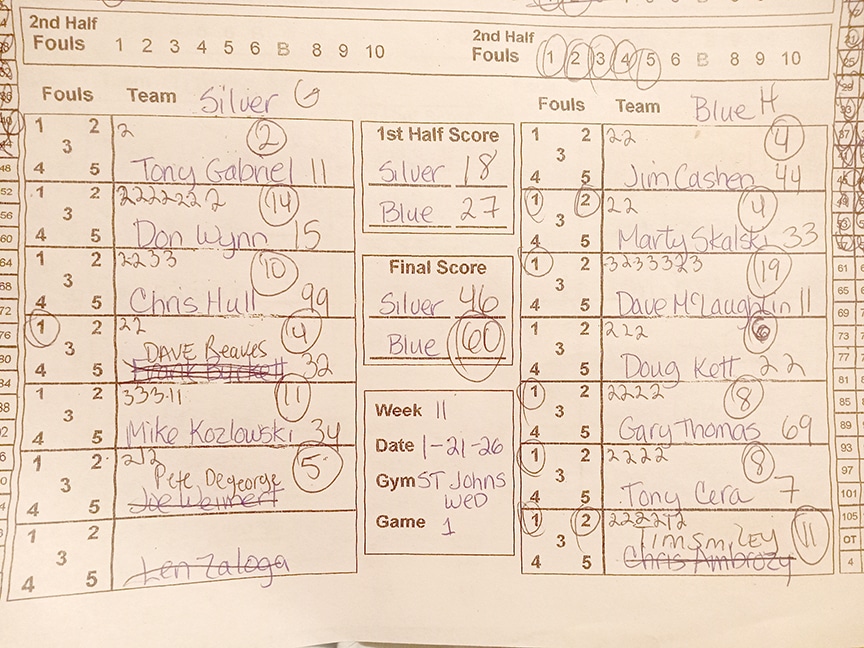 2nd Half
Fouls 1 2 3 4 5 6 B 8 9 10
2nd Half
Fouls 1 2 3 4 5 6 B 8 9 10
Fouls Team Silver G
1 2 3 4 5
2 2
Tony Gabriel 11
1 2 3 4 5
2222222 14
Don Wynn 15
1 2 3 4 5
2233 10
Chris Hull 99
1 2 3 4 5
22 4
DAVE Beaves
Frank Burkett 32
1 2 3 4 5
333.11 11
Mike Kozlowski 34
1 2 3 4 5
212 5
Pete Degeorge
Joe Weimert
1 2 3 4 5
Len Zaloga
1st Half Score
Silver 18
Blue 27
Final Score
Silver 46
Blue 60
Week 11
Date 1-21-26
Gym ST Johns
WED
Game 1
Fouls Team Blue H
1 2 3 4 5
22 4
Jim Cashen 44
1 2 3 4 5
22 4
Marty Skalski 33
1 2 3 4 5
3233323 19
Dave McLaughlin 11
1 2 3 4 5
222 6
Doug Kett 22
1 2 3 4 5
2222 8
Gary Thomas 69
1 2 3 4 5
2222 8
Tony Cera 7
1 2 3 4 5
222212 11
Tim SmiLEY
Chris Ambrozy
48
52
56
60
64
68
72
76
80
84
88
92
61
65
69
73
77
81
85
89
93
97
101
105
OT
4